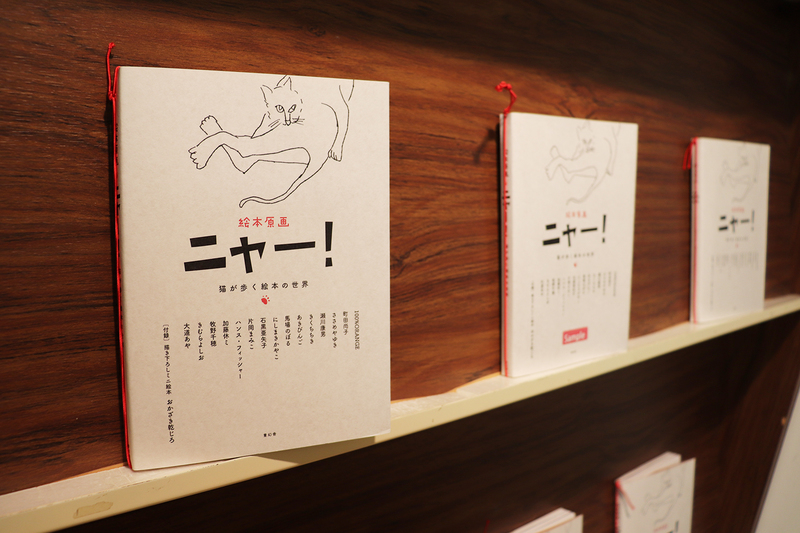 絵本原画
ニャー!
猫が歩く絵本の世界
100%ORANGE
町田尚子
ささめやゆき
瀬川康男
きくちちき
あきびんご
馬場のぼる
にしまきかやこ
石黒亜矢子
片岡まみこ
ハンス・フィッシャー
加藤休ミ
牧野千穂
きむらよしお
大道あや
[付録] 描き下ろしミニ絵本 おかざき乾じろ
青幻舎
絵本原画
ニャー!
猫が歩く絵本の世界
Sample
ニャー!
ニャー!